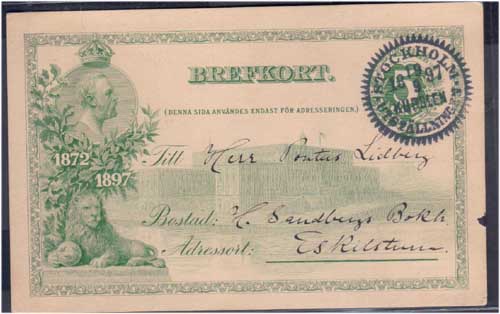 BREFKORT.
(DENNA SIDA ANVÄNDES ENDAST FÖR ADRESSERINGEN.)
STOCKHOLM
16 9 97
UTSTÄLLNING
1872
1897
Till Herr Pontus Lidberg
Bostad: H. Sandbergs Bokh
Adressort: Eskilstuna.